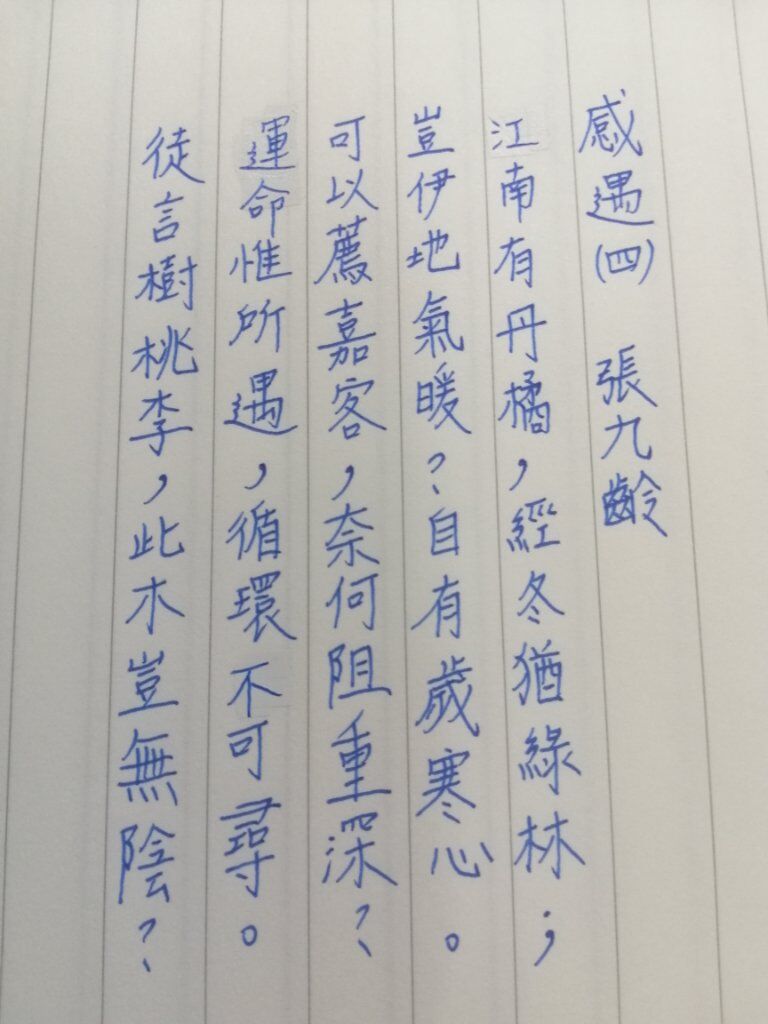 感遇(四) 張九齡
江南有丹橘,經冬猶綠林;
豈伊地氣暖?自有歲寒心。
可以薦嘉客,奈何阻重深?
運命惟所遇,循環不可尋。
徒言樹桃李,此木豈無陰?